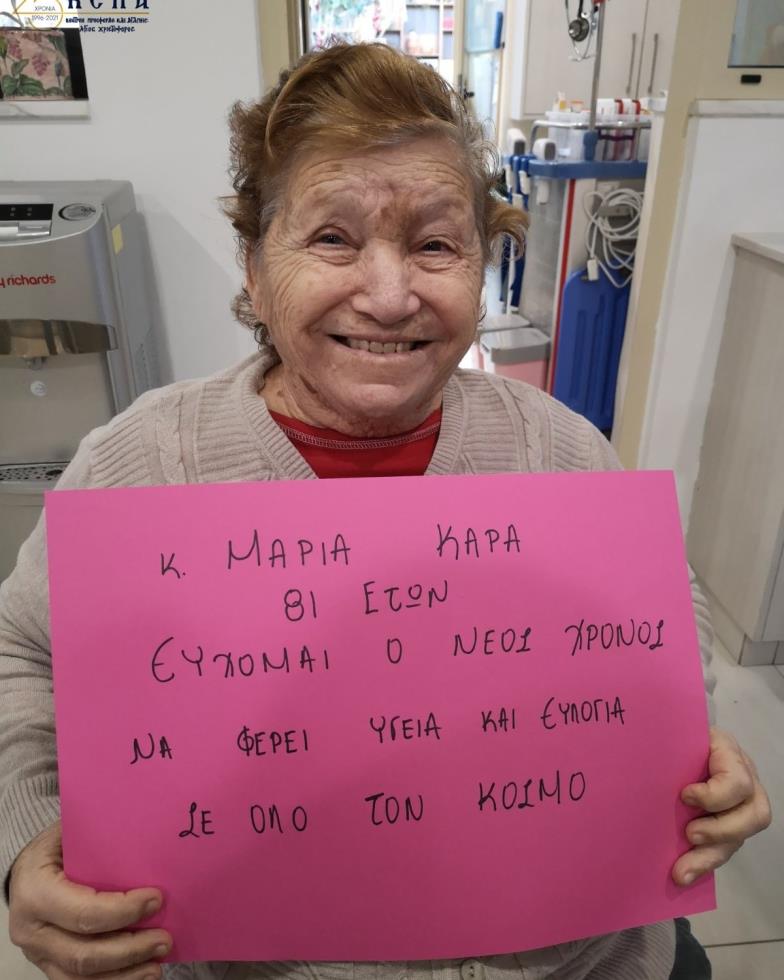 ΧΡΟΝΙΑ
1996-2021
ΚΕΠΑ
ΑΓΙΟΣ ΧΡΙΣΤΟΦΟΡΟΣ
y richards
Κ. ΜΑΡΙΑ ΚΑΡΑ
81 ΕΤΩΝ
ΕΥΧΟΜΑΙ Ο ΝΕΟΣ ΧΡΟΝΟΣ
ΝΑ ΦΕΡΕΙ ΥΓΕΙΑ ΚΑΙ ΕΥΛΟΓΙΑ
ΣΕ ΟΛΟ ΤΟΝ ΚΟΣΜΟ